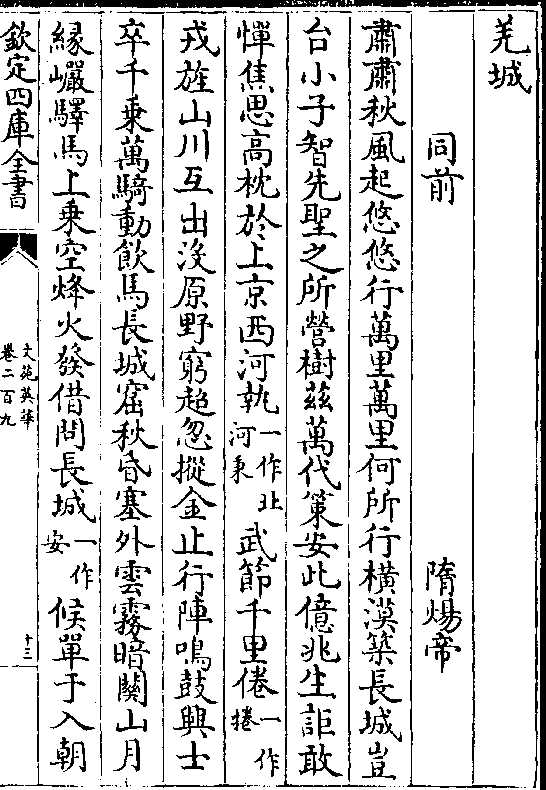 羌城
同前　隋煬帝
肅肅秋風起悠悠行萬里萬里何所行橫漠築長城豈
台小子智先聖之所營樹茲萬代策安此億兆生詎敢
憚焦思高枕於上京西河執一作北河秉武節千里倦一作捲
戎旌山川互出沒原野窮超忽摐金止行陣鳴鼓興士
卒千乗萬騎動飲馬長城窟秋昏塞外雲霧暗關山月
緣巖驛馬上乗空烽火發借問長城一作安候單于入朝
欽定四庫全書
文苑英華
卷二百九
十三